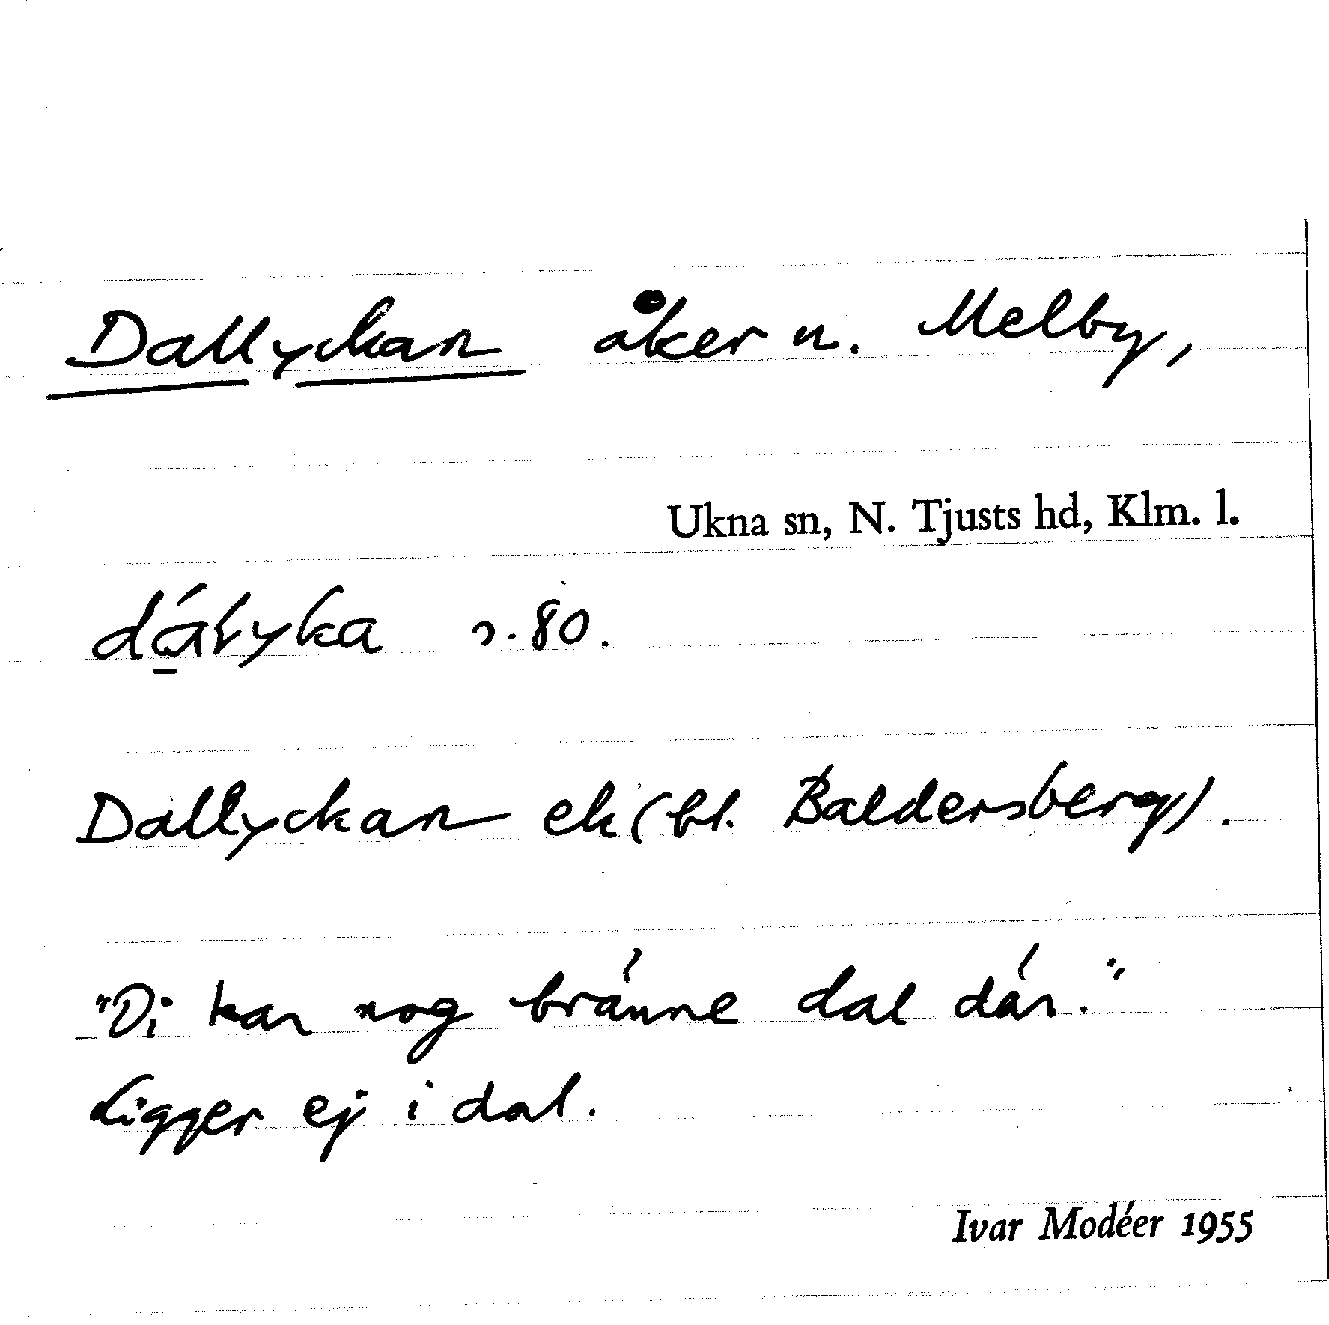 Dallyckan åker n. Melby,
Ukna sn, N. Tjusts hd, Klm. l.
dályka s. 80.
Dallyckan ek (bl. Baldersberg).
"Di kan nog bränne dal där."
Ligger ej i dal.
Ivar Modéer 1955